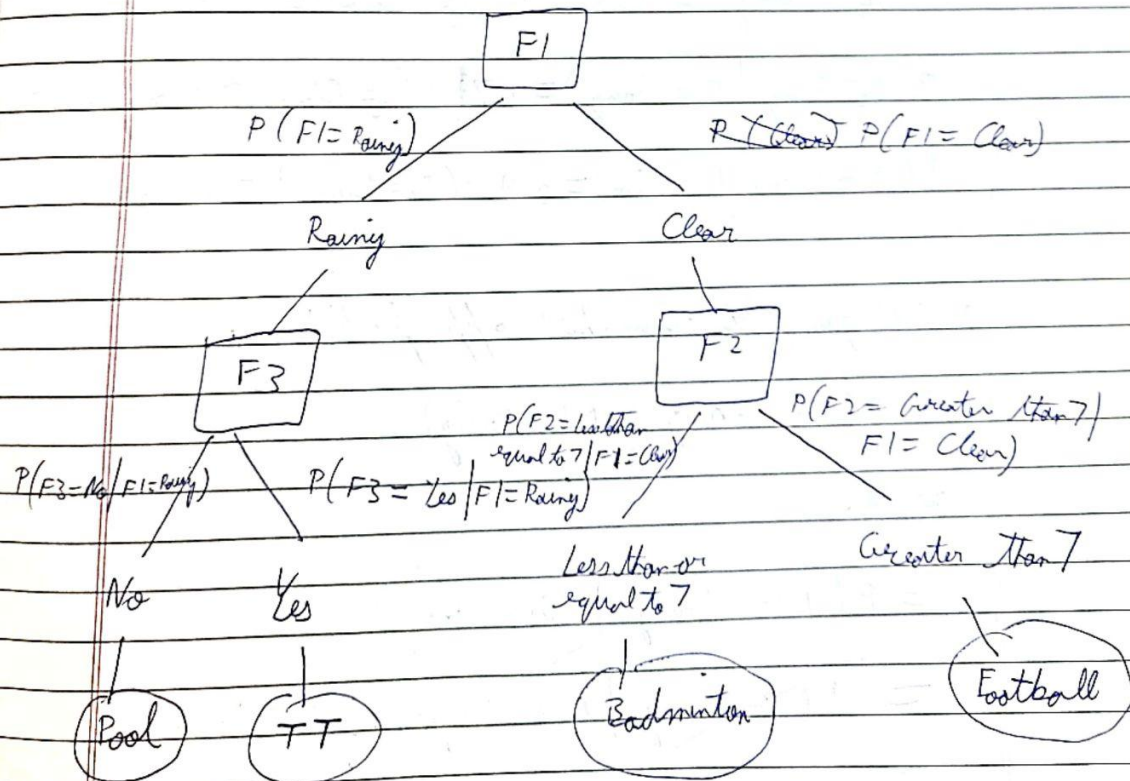 F1
P (F1 = Rainy)
P (Clear) P(F1 = Clear)
Rainy
Clear
F3
F2
P(F3=No/F1=Rainy)
P(F3 = Yes/F1=Rainy)
P(F2=Less than
equal to 7/F1=Clear)
P(F2= Greater than 7/
F1= Clear)
No
Yes
Less than or
equal to 7
Greater than 7
Pool
TT
Badminton
Football